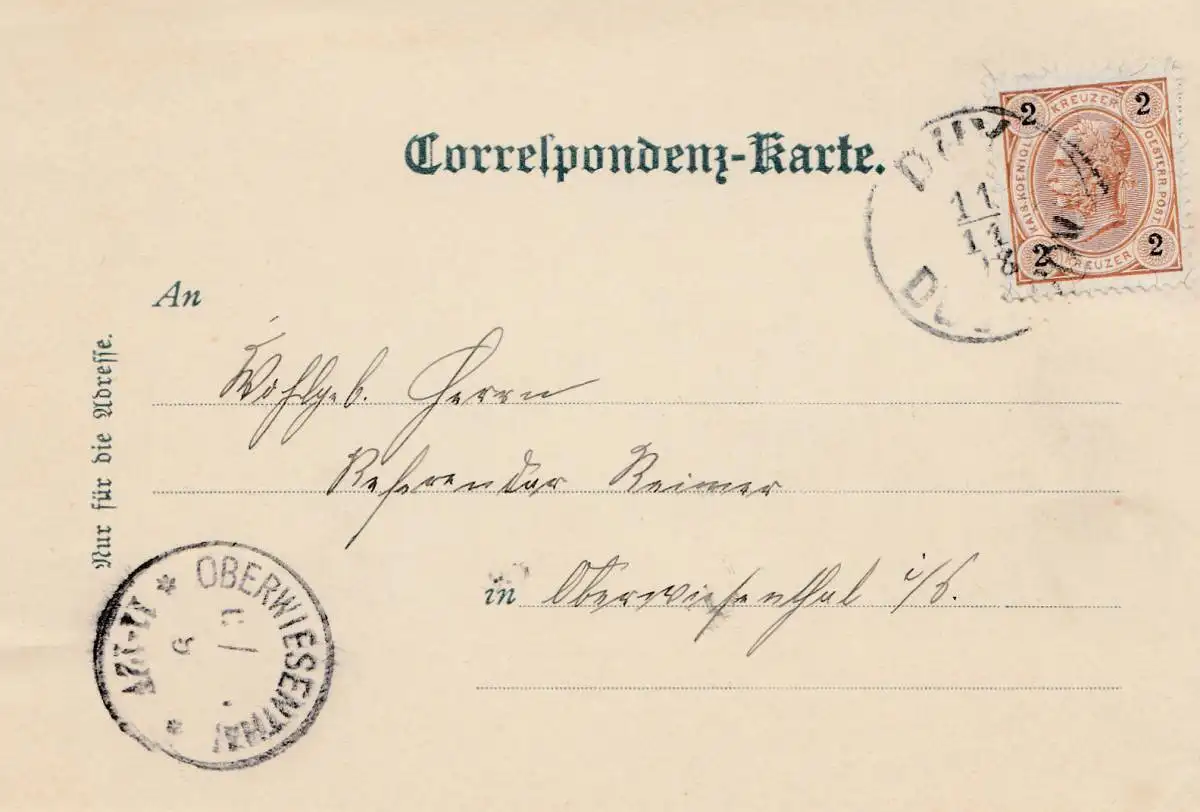 Correspondenz-Karte.
2 KREUZER 2
KAIS. KOENIGL.
OESTERR. POST
2 KREUZER 2
11
11
An
Wohlgeb. Herrn
Referendar Reimer
in Oberwiesenthal i/S.
Nur für die Adresse.
* OBERWIESENTHAL *